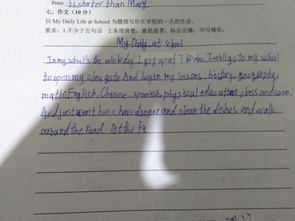 Peter is shorter than Mary.
七、作文(10分)
以 My Daily Life at School 为题描写你在学校的一天的生活。
要求：1.不少于五句话 2.条理清楚，意思连贯，标点正确，书写规范。
My Daily at school
In my school's the whole day. I get up at I will go to my school
to open my class And began my lessons, history, geography
math English, Chinese, spanish, physical education class and soon.
And just went home have dinner and clean the dishes and walk
around the road. At the